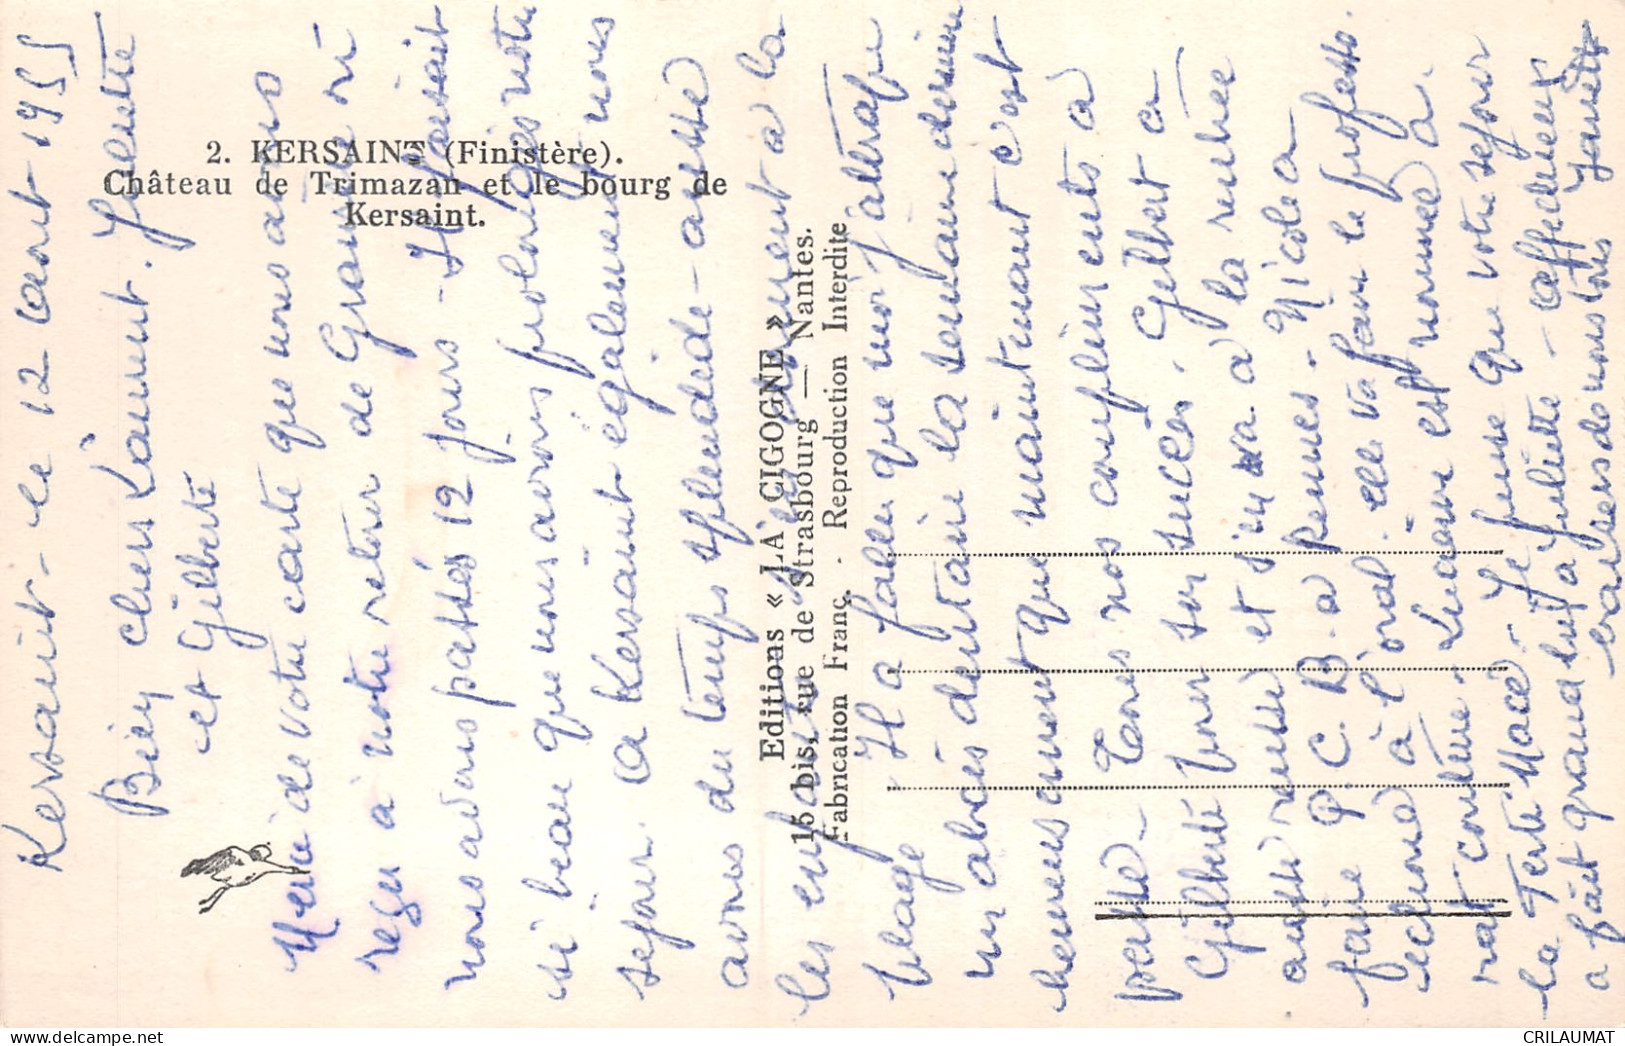 2. KERSAINT (Finistère).
Château de Trimazan et le bourg de
Kersaint.
Editions « LA CIGOGNE »
15 bis, rue de Strasbourg — Nantes.
Fabrication Franç. - Reproduction Interdite
Kersaint - le 12 août 1955
Bien chers Laurent. Jeannette
et Gilberte
Merci de votre carte que nous avons
reçu à notre retour de Granville où
nous avons passés 12 jours - Il faisait
si beau que nous avons prolongés notre
sejour. A Kersaint également nous
avons du temps splendide - aussi
les enfants à la
plage. Il a fallu que moi j'attrape
un abcès dentaire la semaine dernière
heureusement que maintenant c'est
passé - Tous nos compliments à
Gilberte pour son succès. Gilbert a
aussi réussi et à la rentrée
faire P.C.B. à Rennes. Nicole a
échoué à l'oral. elle va faire le professo.
rat couture - Lucienne est nommée à
la Terte Macé. Je pense que votre sejour
a fait grand bien à Juliette - Affectueux
baisers de nous tous
CRILAUMAT